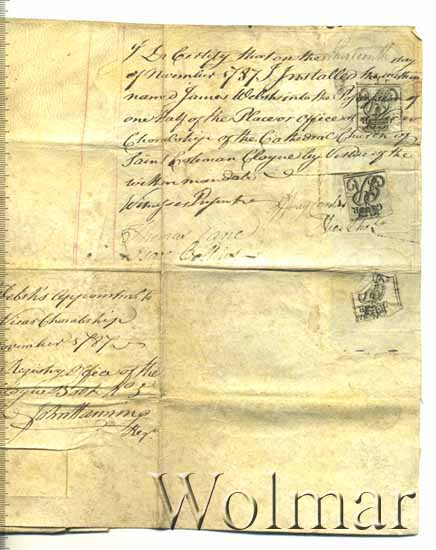 I Do Certify that on the thirteenth day
of November 1787 I Installed the within
named James Welsh into the Possession of
one half of the Place or office of Vicar
Choralship of the Cathedral Church of
Saint Colman Cloyne by Virtue of the
within mandate
Witnesses Present
Thomas Lane
Vic. Chol
Welsh's appointmt. to
Vicar Choralship
November 1787
Registry Office of the
Cloyne Book No. 5
John Hanning
Regr.
Wolmar